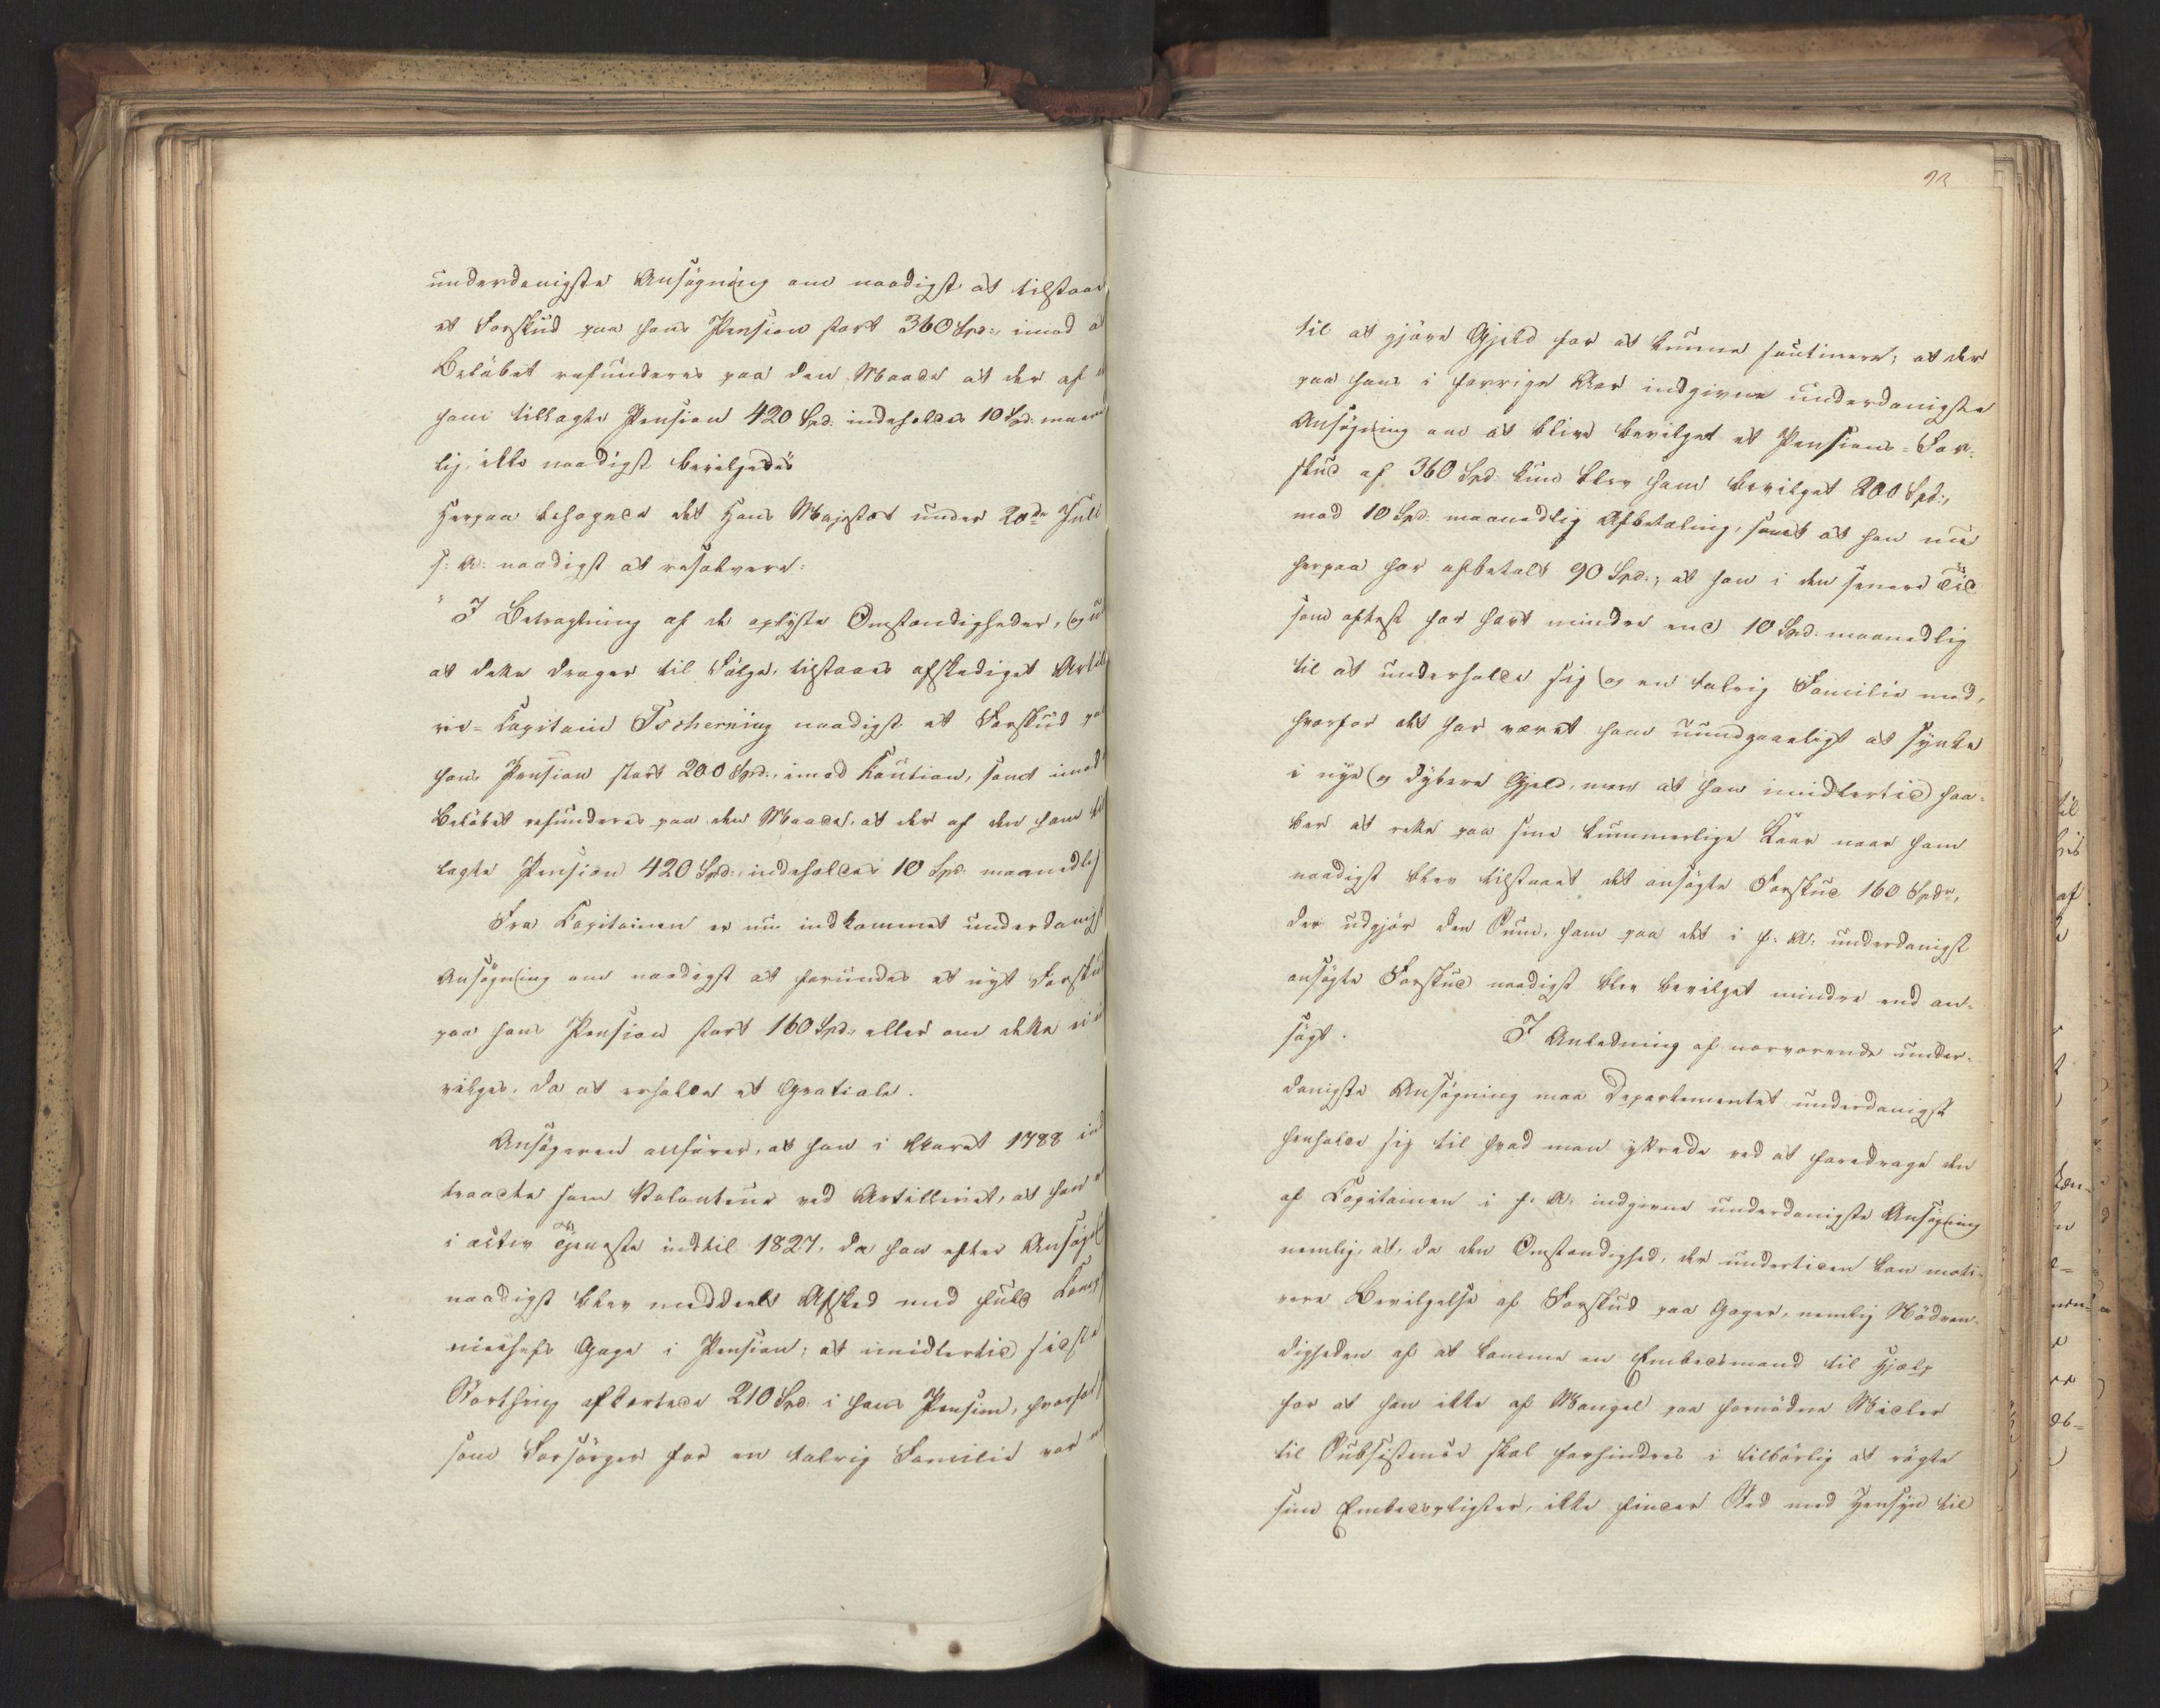 underdanigste Ansögning om naadigst at tilstaaes
et Forskud paa hans Pension stort 360 Spd:, imod at
Belöbet refunderes paa den Maade at der af den
ham tillagte Pension 420 Spd. indeholdes 10 Spd. maaned
lig, ikke naadigst bevilgedes
Herpaa behagede det Hans Majestæt under 20de Juli
f: A: naadigst at resolvere:
"I Betragtning af de oplyste Omstændigheder, og uden
at dette drager til Fölge, tilstaaes afskediget Artille
rie-Capitain Tscherning naadigst et Forskud paa
hans Pension stort 200 Spd:, imod Kaution, samt imod at
Belöbet refunderes paa den Maade, at der af den ham til
lagte Pension 420 Spd: indeholdes 10 Spd. maanedlig
Fra Capitainen er nu indkommet underdanigst
Ansögning om naadigst at forundes et nyt Forskud
paa hans Pension stort 160 Spd:, eller om dette ei be
vilges, da at erholde et Gratiale.
Ansögeren anförer, at han i Aaret 1788 ind
traadte som Volonteur ved Artilleriet, at han var
i activ Tjeneste indtil 1827, da han efter Ansögning
naadigst blev meddeelt Afsked med fuld Compag
niechefs Gage i Pension; at imidlertid sidste
Storthing afkortede 210 Spd. i hans Pension, hvorfor han
som Forsörger for en talrig Familie var nödt
93
til at gjöre Gjeld for at kunne soutinere; at der
paa hans i forrige Aar indgivne underdanigste
Ansögning om at blive bevilget et Pensions-For-
skud af 360 Spd. kun blev ham bevilget 200 Spd:,
mod 10 Spd. maanedlig Afbetaling, samt at han nu
herpaa har afbetalt 90 Spd.; at han i den senere Tid
som oftest har havt mindre end 10 Spd. maanedlig
til at underholde sig og en talrig Familie med,
hvorfor det har været ham uundgaaeligt at synke
i nye og dybere Gjeld, men at han imidlertid haa-
ber at rette paa sine kummerlige Kaar naar ham
naadigst blev tilstaaet det ansögte Forskud 160 Spdr,
der udgjör den Sum, ham paa det i f: A: underdanigst
ansögte Forskud naadigst blev bevilget mindre end an-
sögt. I Anledning af nærværende under-
danigste Ansögning maa Departementet underdanigst
henholde sig til hvad man yttrede ved at foredrage den
af Capitainen i f: A: indgivne underdanigste Ansögning
nemlig, at, da den Omstændighed, der undertiden kan moti-
vere Bevilgelse af Forskud paa Gager, nemlig Nödven-
digheden af at komme en Embedsmand til Hjælp
for at han ikke af Mangel paa fornödne Midler
til Subsistence skal forhindres i tilbörlig at rögte
sine Embedspligter, ikke finder Sted med Hensyn til